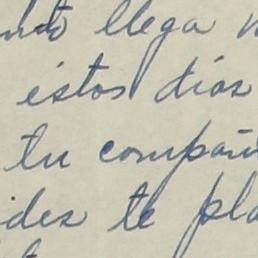 llega
éstos días
tu compañ
ides te pla